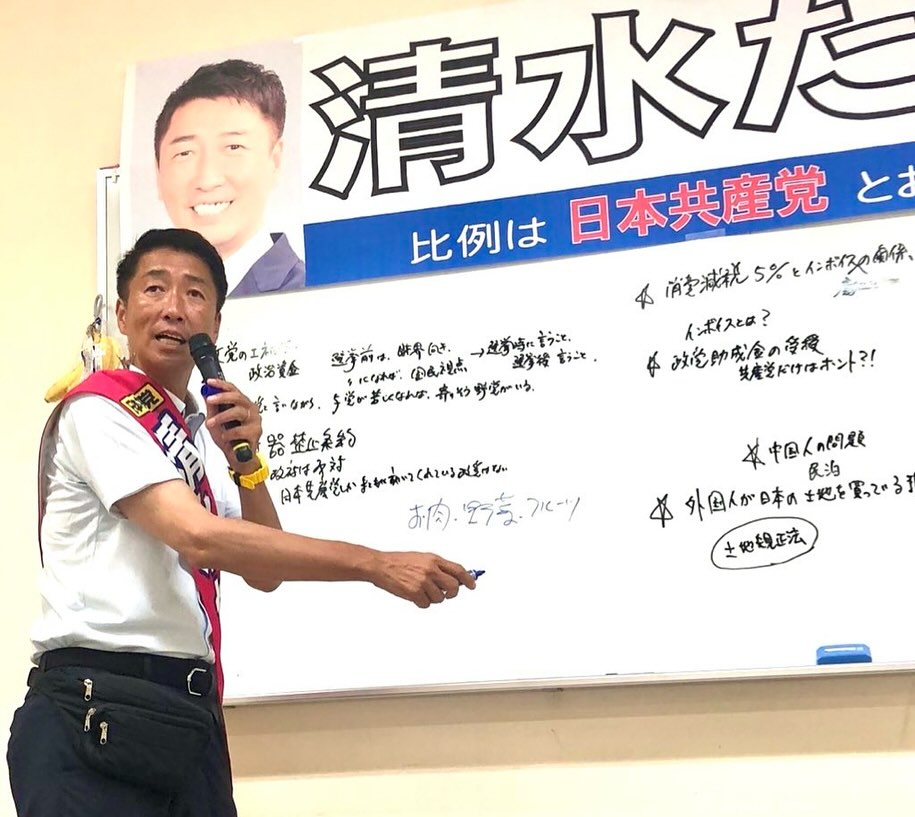 清水た
比例は 日本共産党 とお
政治資金
選挙前は、財界向き、
→選挙時に言うこと、
選挙後 言うこと、
になれば、国民視点
と言いながら、与党が苦しくなれば、
野党がいる。
器 禁止条約
政府は反対
日本共産党
お肉、野菜、フルーツ
☆ 消費減税 5%とインボイスの関係、
インボイスとは?
☆ 政党助成金の受授
共産党だけはホント?!
☆ 中国人の問題
民泊
☆ 外国人が日本の土地を買っている
土地規正法